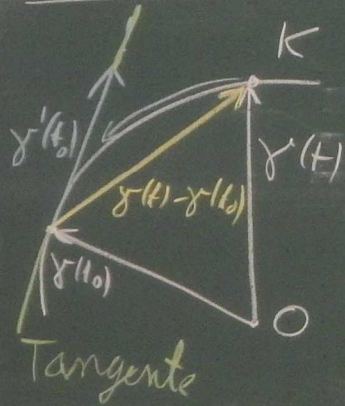 K
γ'(t₀)
γ(t)
γ(t)-γ(t₀)
γ(t₀)
O
Tangente